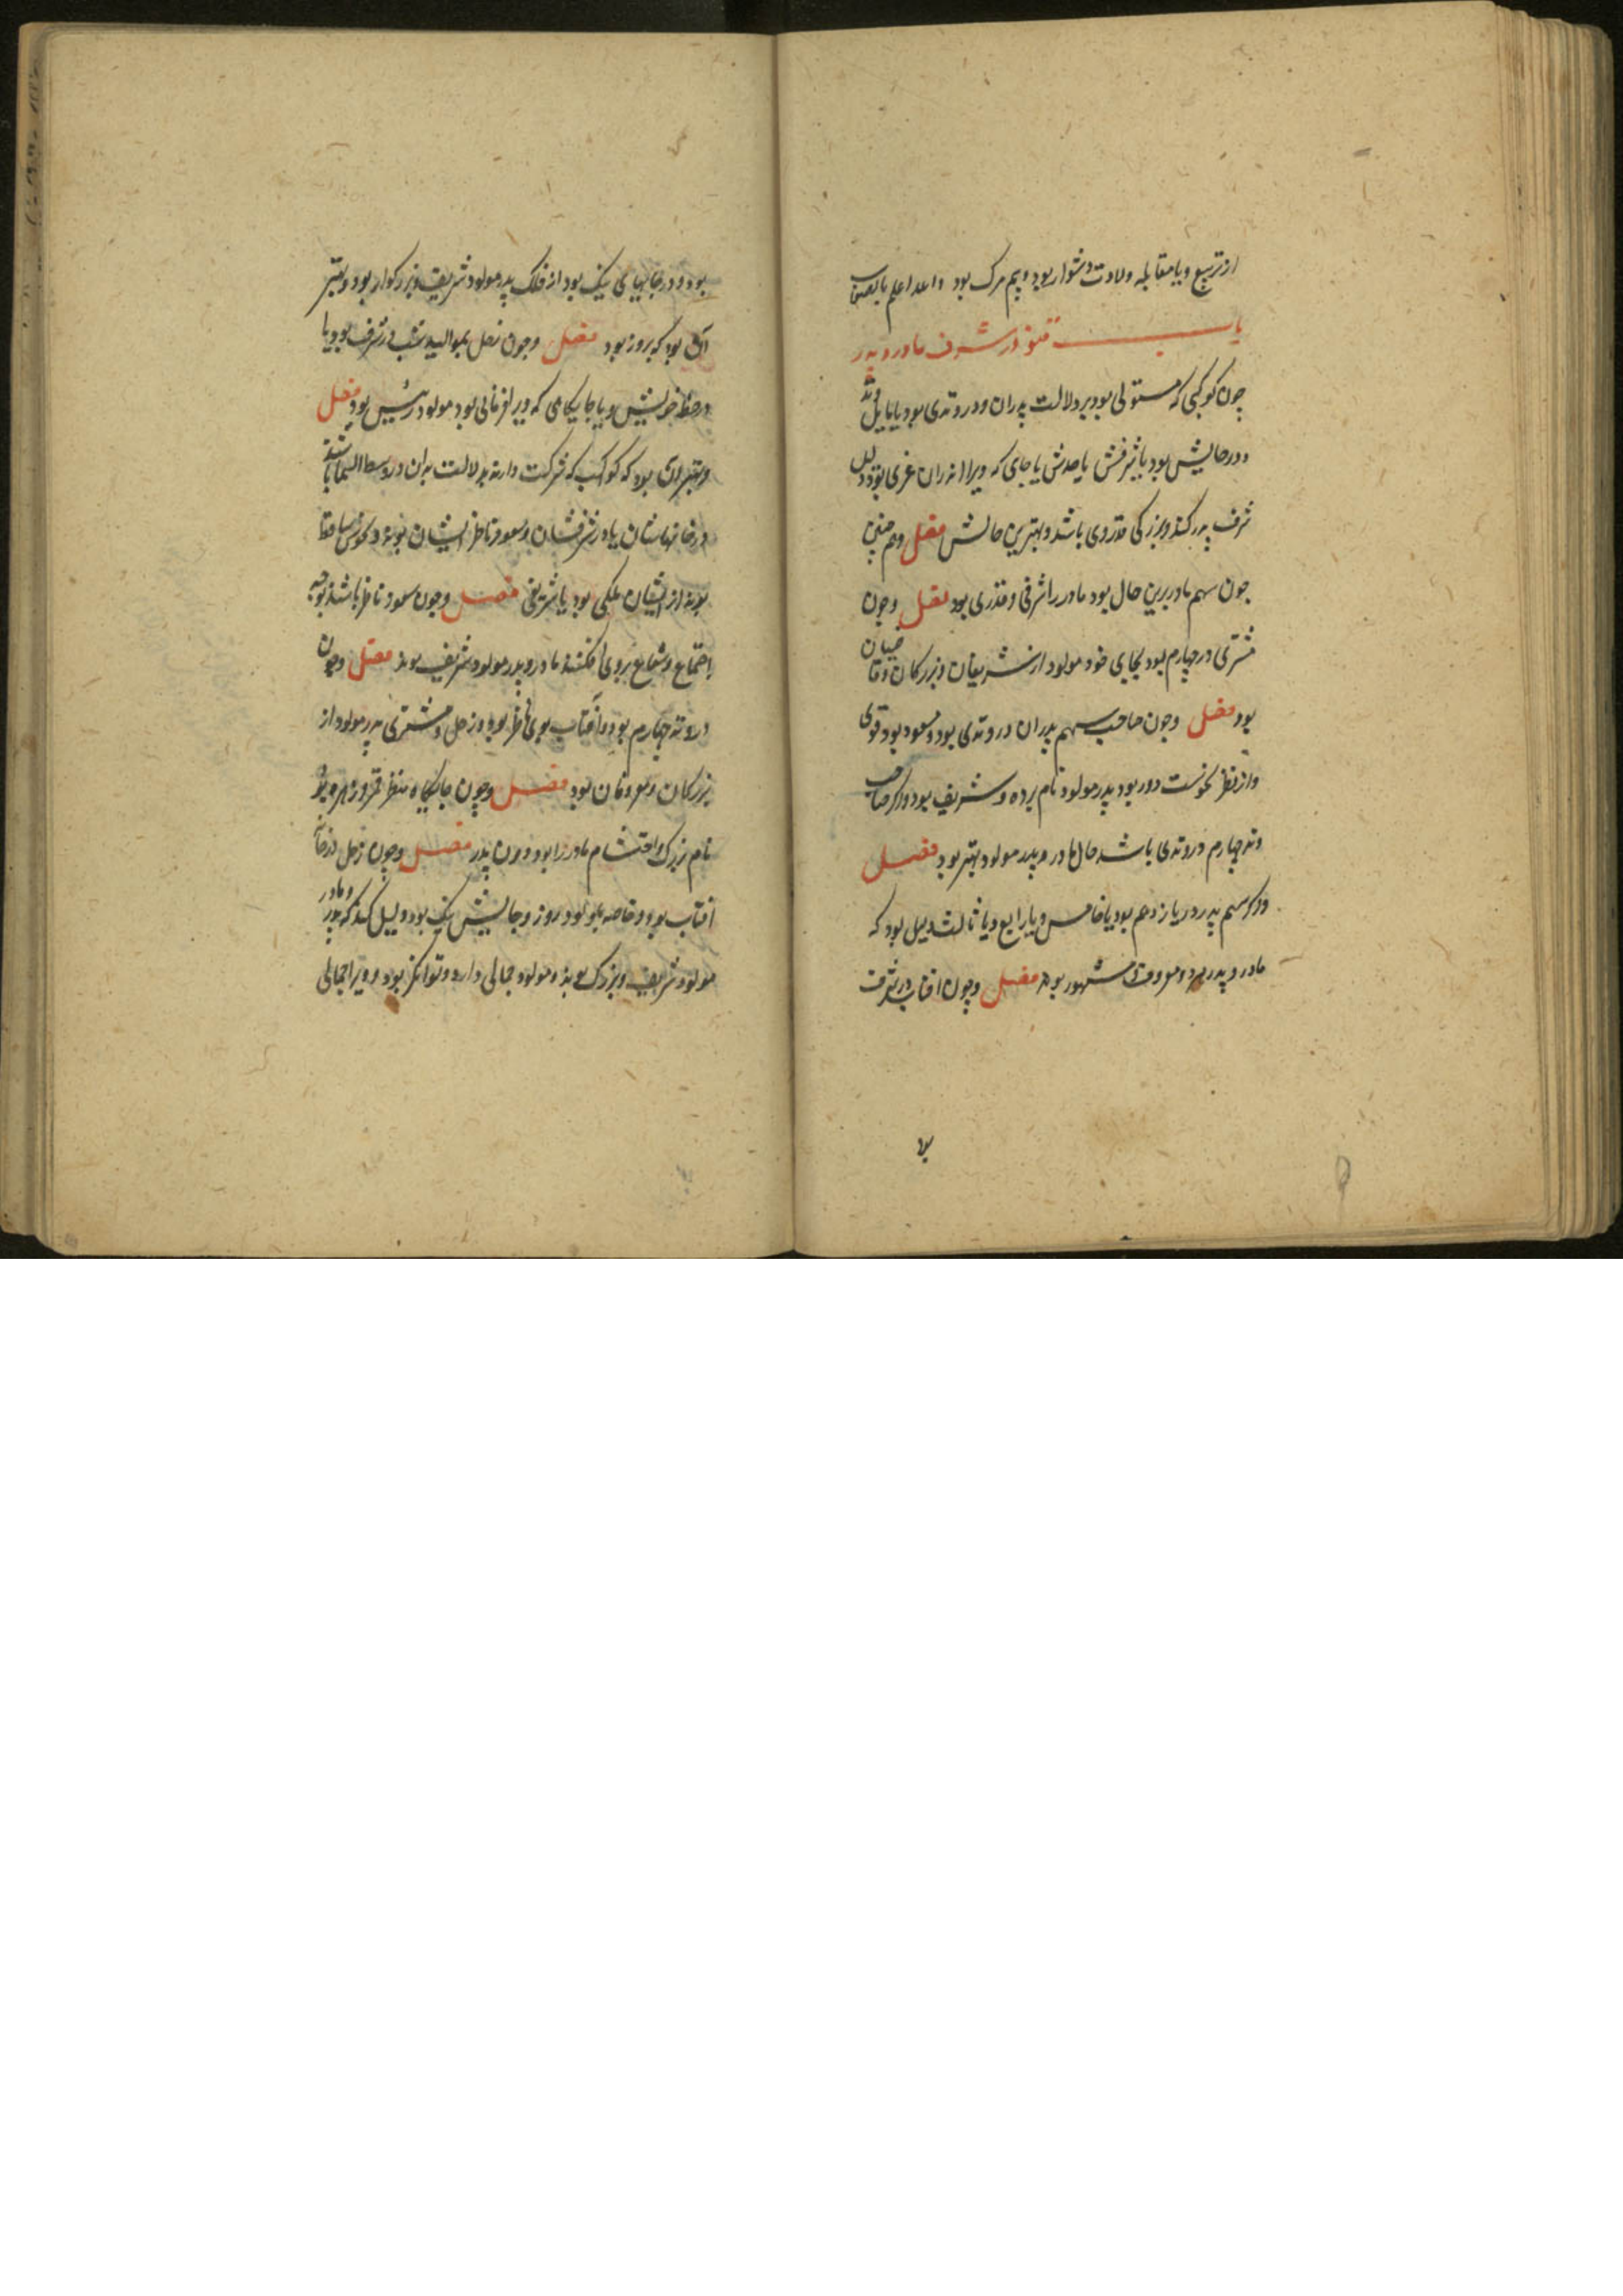 از تربیع ویا مقابله ولادت دشوار بود وبیم مرک بود واعد اعلم بالصواب
باب در شرف مادر وپدر
چون کوکبی که مستولی بود بر دلالت پدران ودر وتدی بود یا مایل وتد
ودر حالیش بود یا شرفش یا حدش یا جای که ویرا اندران عزی بود دلیل
شرف پدر کند وبزرکی قدر وی باشد وبهترین حالش فصل وهم چنین
چون سهم مادر برین حال بود مادر را شرفی وقدری بود فصل وچون
مشتری در چهارم بود بجای خود مولود از شریفان وبزرکان وقاضیان
بود فصل وچون صاحب سهم پدران در وتدی بود ومسعود بود وقوی
واز نظر نحوست دور بود پدر مولود نام برده وشریف بود واکر صاحب
وتد چهارم در وتدی باشد حال مادر وپدر مولود بهتر بود فصل
واکر سهم پدر در یازدهم بود یا خامس ویا رابع ویا ثالث دلیل بود که
مادر وپدر هر دو معروف ومشهور بوند فصل وچون افتاب در شرف
بود
بود ودر جایهای نیک بود از فلک پدر مولود شریف وبزرکوار بود وبهتر
آن بود که بروز بود فصل وچون زحل بموالید شب در شرف بود یا
در حظ خویش ویا جایکاهی که ویرا فرمانی بود مولود رئیس بود فصل
وبهتر آن بود که کواکب که شرکت دارند بدلالت پدران در وسط السما باشند
در خانهاشان یا در شرفشان وسعود ناظر ایشان بوند ونحوس ساقط
بوند از ایشان ملکی بود یا شریفی فصل وچون سعود ناظر باشند بوجه
اجتماع وشعاع بروی افکنند مادر وپدر مولود شریف بوند فصل وچون
در وتد چهارم بود وآفتاب بوی ناظر بود وزحل ومشتری پدر مولود از
بزرکان ومعروفان بود فصل وچون جایکاه بنظر قمر وزهره بود
نام بزرک واحتشام مادر را بود دون پدر فصل وچون زحل در خانه
افتاب بود وخاصه بمولود روز وجالیش نیک بود دلیل کند که پدر ومادر
مولود شریف وبزرک بوند ومولود جمالی دارد وتوانکر بود وویرا جمالی